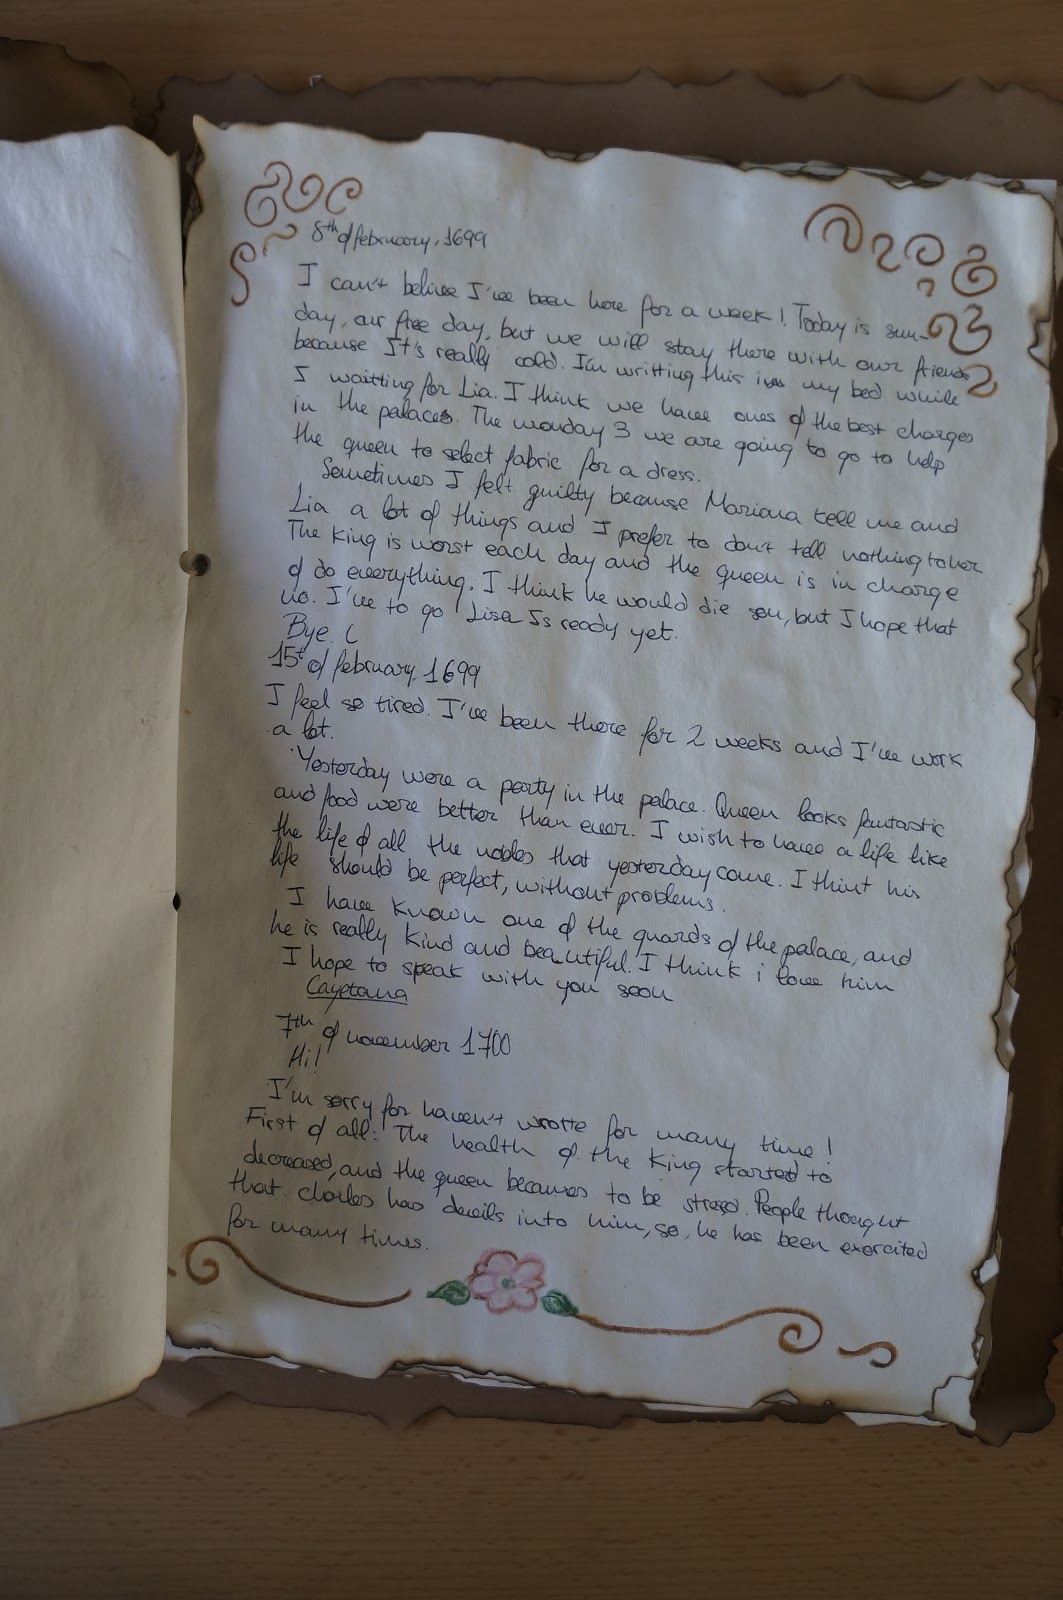 8th of february, 1699
I can't belive I've been here for a week! Today is sun-
day, our free day, but we will stay there with our friends
because It's really cold. I'm writting this in my bed while
I waitting for Lia. I think we have ones of the best charges
in the palaces. The monday 3 we are going to go to help
the queen to select fabric for a dress.
Sometimes I felt guilty because Mariana tell me and
Lia a lot of things and I prefer to don't tell nothing to her
The King is worst each day and the queen is in charge
of do everything. I think he would die son, but I hope that
no. I've to go Lisa Is ready yet.
Bye. C
15t of february, 1699
I feel so tired. I've been there for 2 weeks and I've work
a lot.
Yesterday were a party in the palace. Queen looks fantastic
and food were better than ever. I wish to have a life like
the life of all the nobles that yesterday come. I thint his
life should be perfect, without problems.
I have known one of the guards of the palace, and
he is really kind and beautiful. I think i love him
I hope to speak with you soon
Cayetana
7th of november 1700
Hi!
I'm sorry for haven't wrotte for many time!
First of all: The health of the King started to
decreased, and the queen becames to be stresd. People thougut
that charles has devils into him, so, he has been exorcited
for many times.